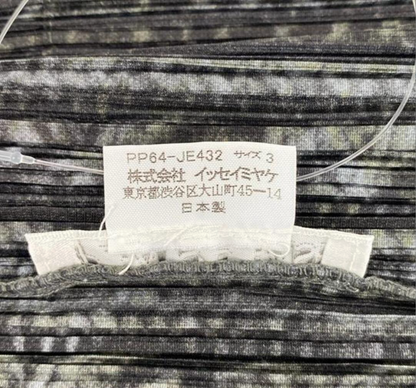 PP64-JE432 サイズ 3
株式会社 イッセイミヤケ
東京都渋谷区大山町45-14
日本製